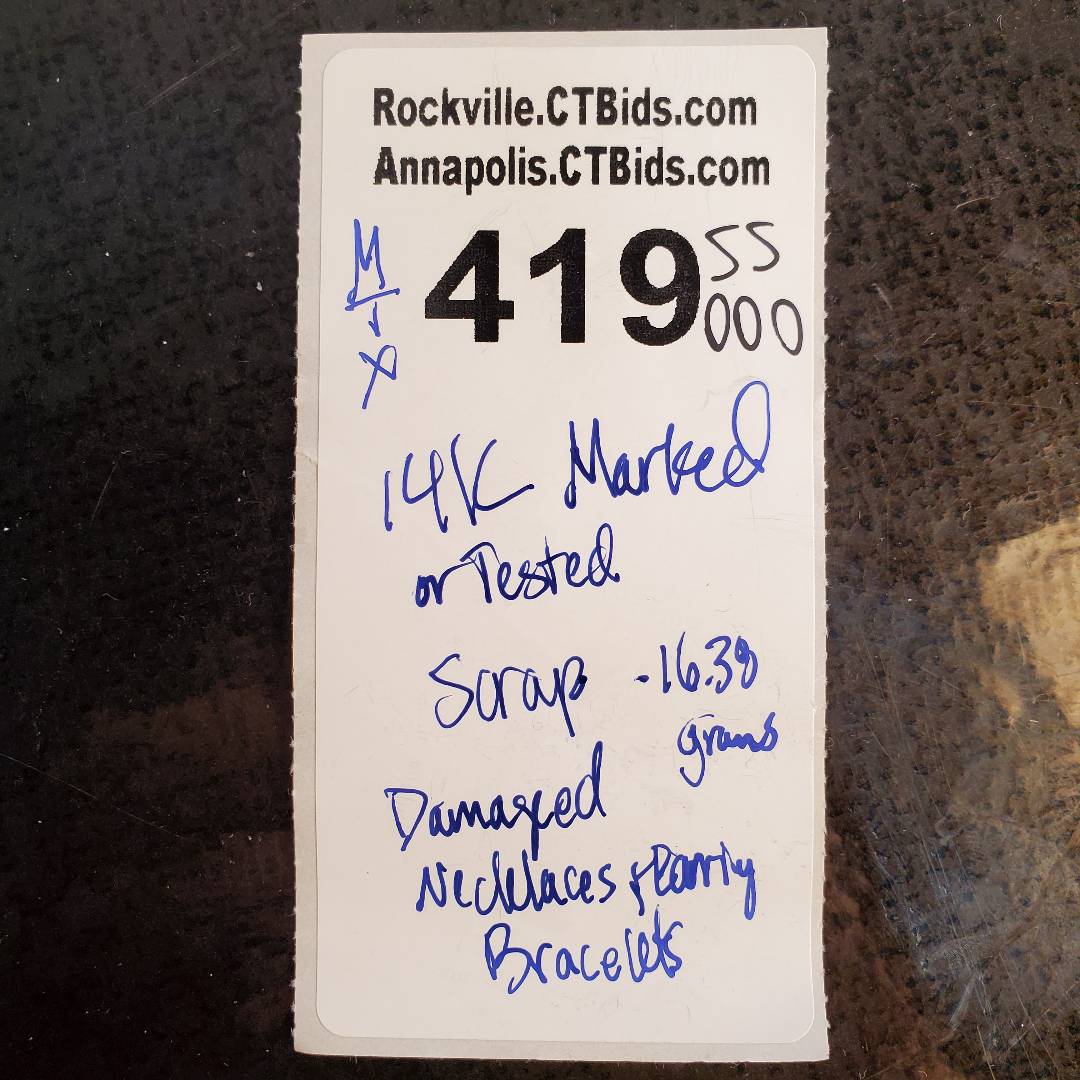 Rockville.CTBids.com
Annapolis.CTBids.com
419
SS
000
14K Marked
or Tested
Scrap - 16.38
grams
Damaged
Necklaces +
Bracelets